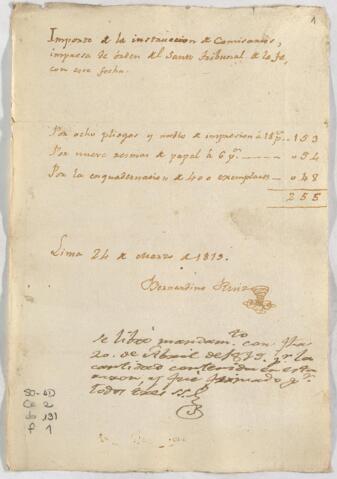 1
Importe de la instruccion de Comisarios,
impresa de orden del Santo Tribunal de la Fe,
con esta fecha.
Por ocho pliegos y medio de impresion á 18 p.. 153
Por nueve resmas de papel á 6 p. 054
Por la enquadernacion de 400 exemplares 048
255
Lima 24 de Marzo de 1819.
Bernardino Ruiz
Se libró mandam.to con fha
20. de Abril de 1819. p.r la
cantidad contenida en esta
razon y fué firmado p.r
todos tres SS.
SO-GD
Ca 2
do 191
f 1